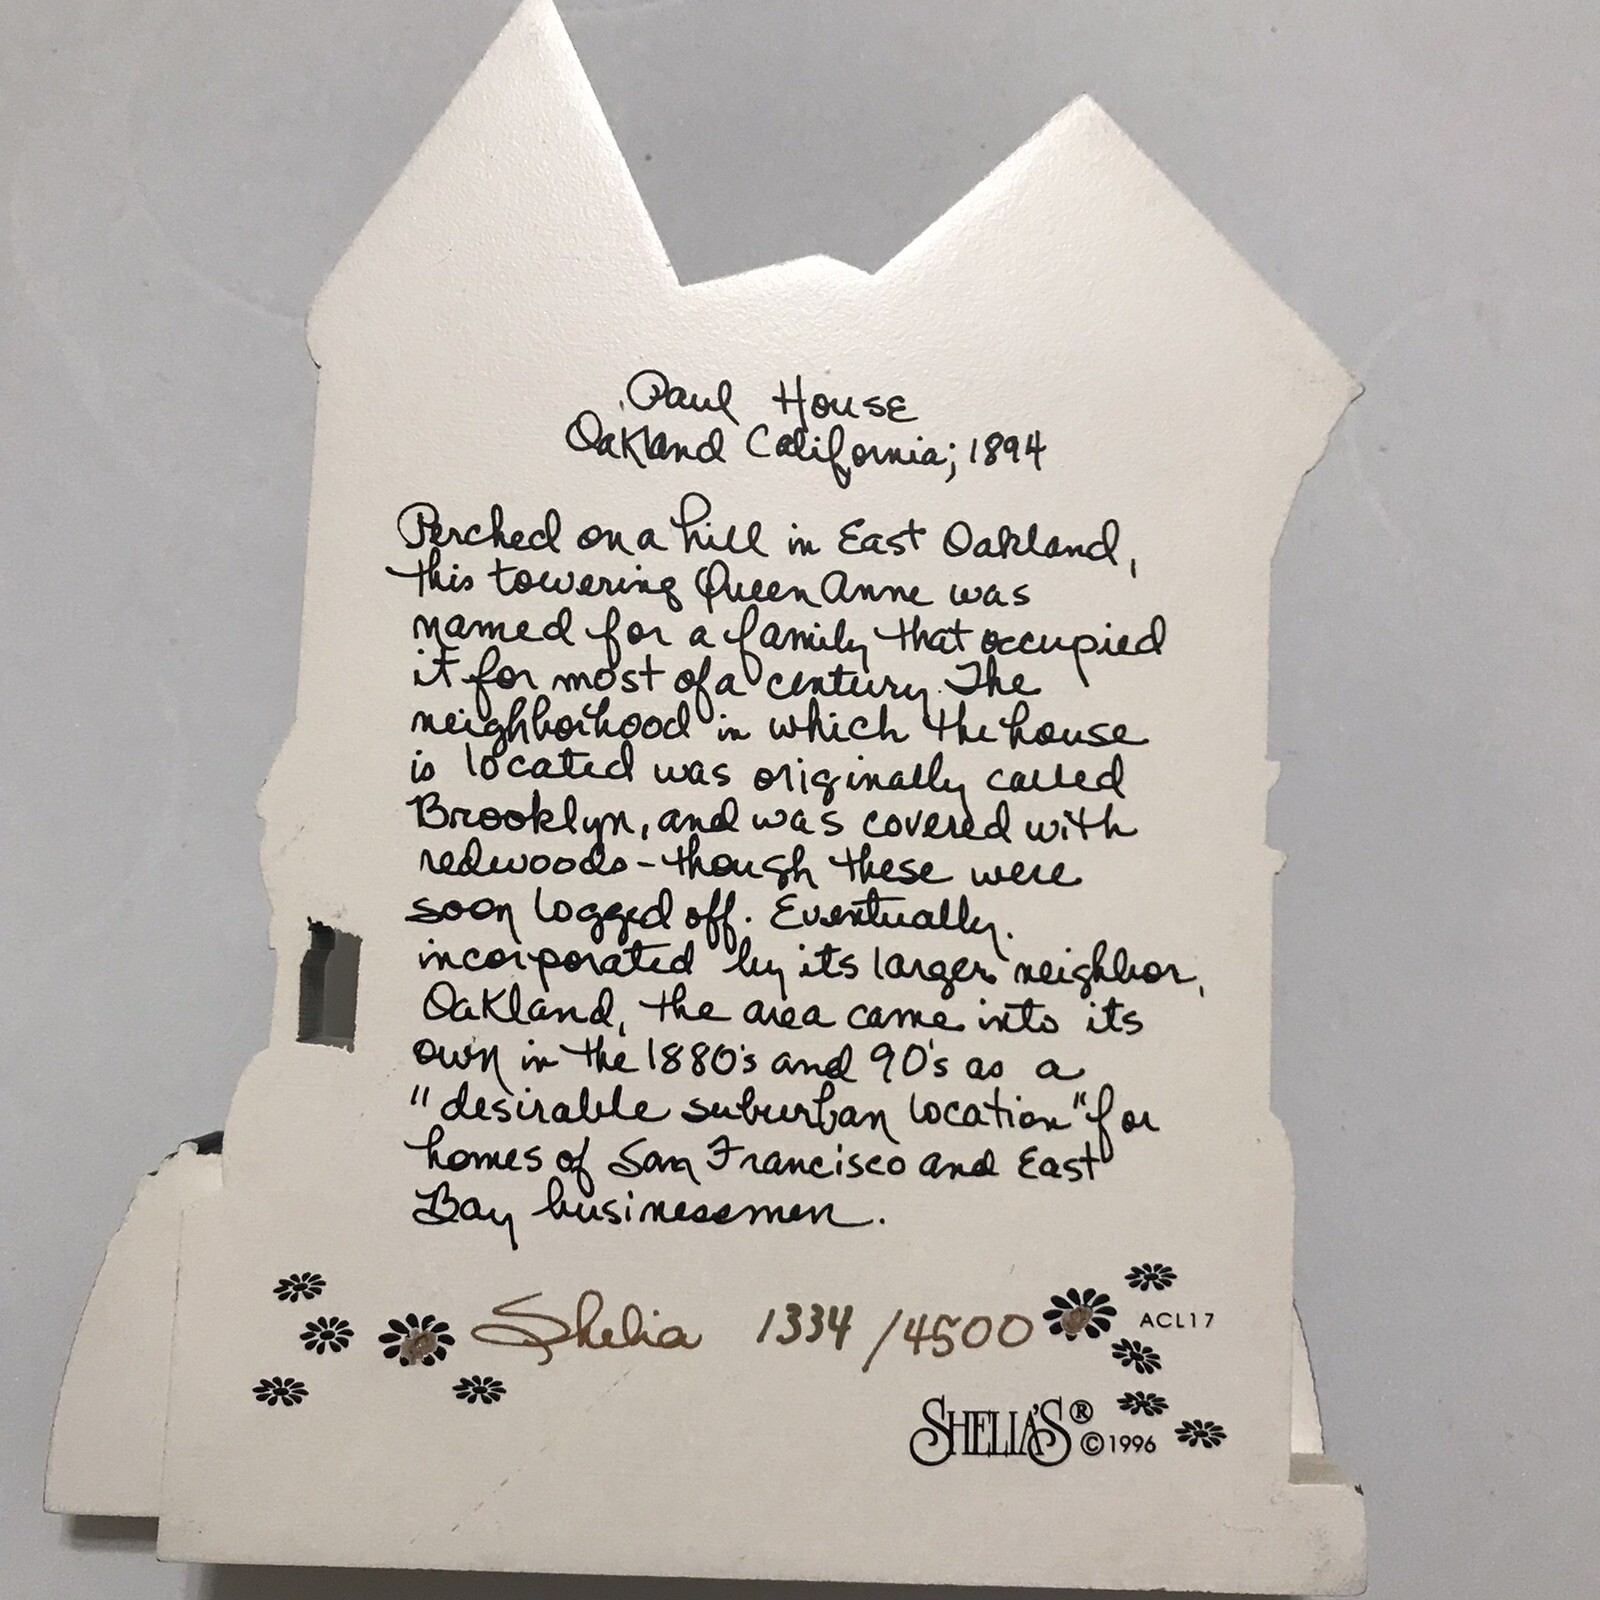 Paul House
Oakland California; 1894
Perched on a hill in East Oakland,
this towering Queen Anne was
named for a family that occupied
it for most of a century. The
neighborhood in which the house
is located was originally called
Brooklyn, and was covered with
redwoods - though these were
soon logged off. Eventually
incorporated by its larger neighbor,
Oakland, the area came into its
own in the 1880's and 90's as a
"desirable suburban location" for
homes of San Francisco and East
Bay businessmen.
Shelia 1334/4500
ACL17
SHELIA'S®
©1996